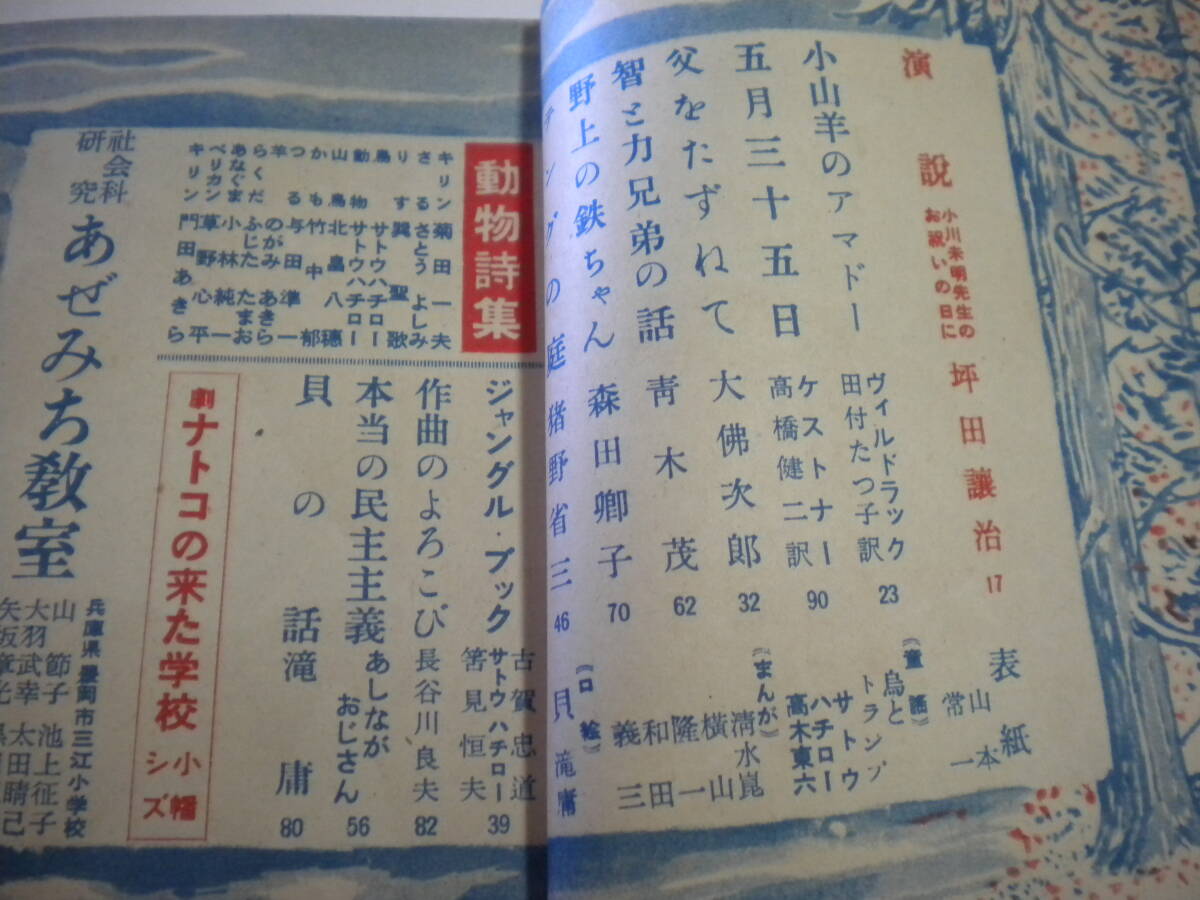 演説 小川未明先生の
お祝いの日に
坪田讓治 17
小山羊のアマドー
ヴィルドラック
田付たつ子訳 23
五月三十五日
ケストナー
高橋健二訳 90
父をたずねて 大佛次郎 32
智と力兄弟の話 青木茂 62
野上の鉄ちゃん 森田卿子 70
の庭 猪野省三 46
表紙 山本常一
《童謡》
烏とトランプ
サトウハチロー
高木東六
《まんが》
清水崑
横山隆一
和田義三
《口絵》
貝 滝庸
動物詩集
キリン 菊田一夫
さる さとうよしみ
りす 巽聖歌
鳥 サトウハチロー
動物 サトウハチロー
山鳥 北畠八穂
かも 竹中郁
つる 与田凖一
羊 のがみあきら
らくだ ふじたたまお
あなぐま 小林純一
ペリカン 草野心平
キリン 門田あきら
ジャングル・ブック
古賀忠道
サトウハチロー
筈見恒夫 39
作曲のよろこび 長谷川良夫 82
本当の民主主義 あしながおじさん 56
貝の話 滝庸 80
劇 ナトコの来た学校 小幡シズ
社会科
研究
あぜみち教室
兵庫県豊岡市三江小学校
山節子 池上征子
大羽武幸 太田晴己
矢坂章光